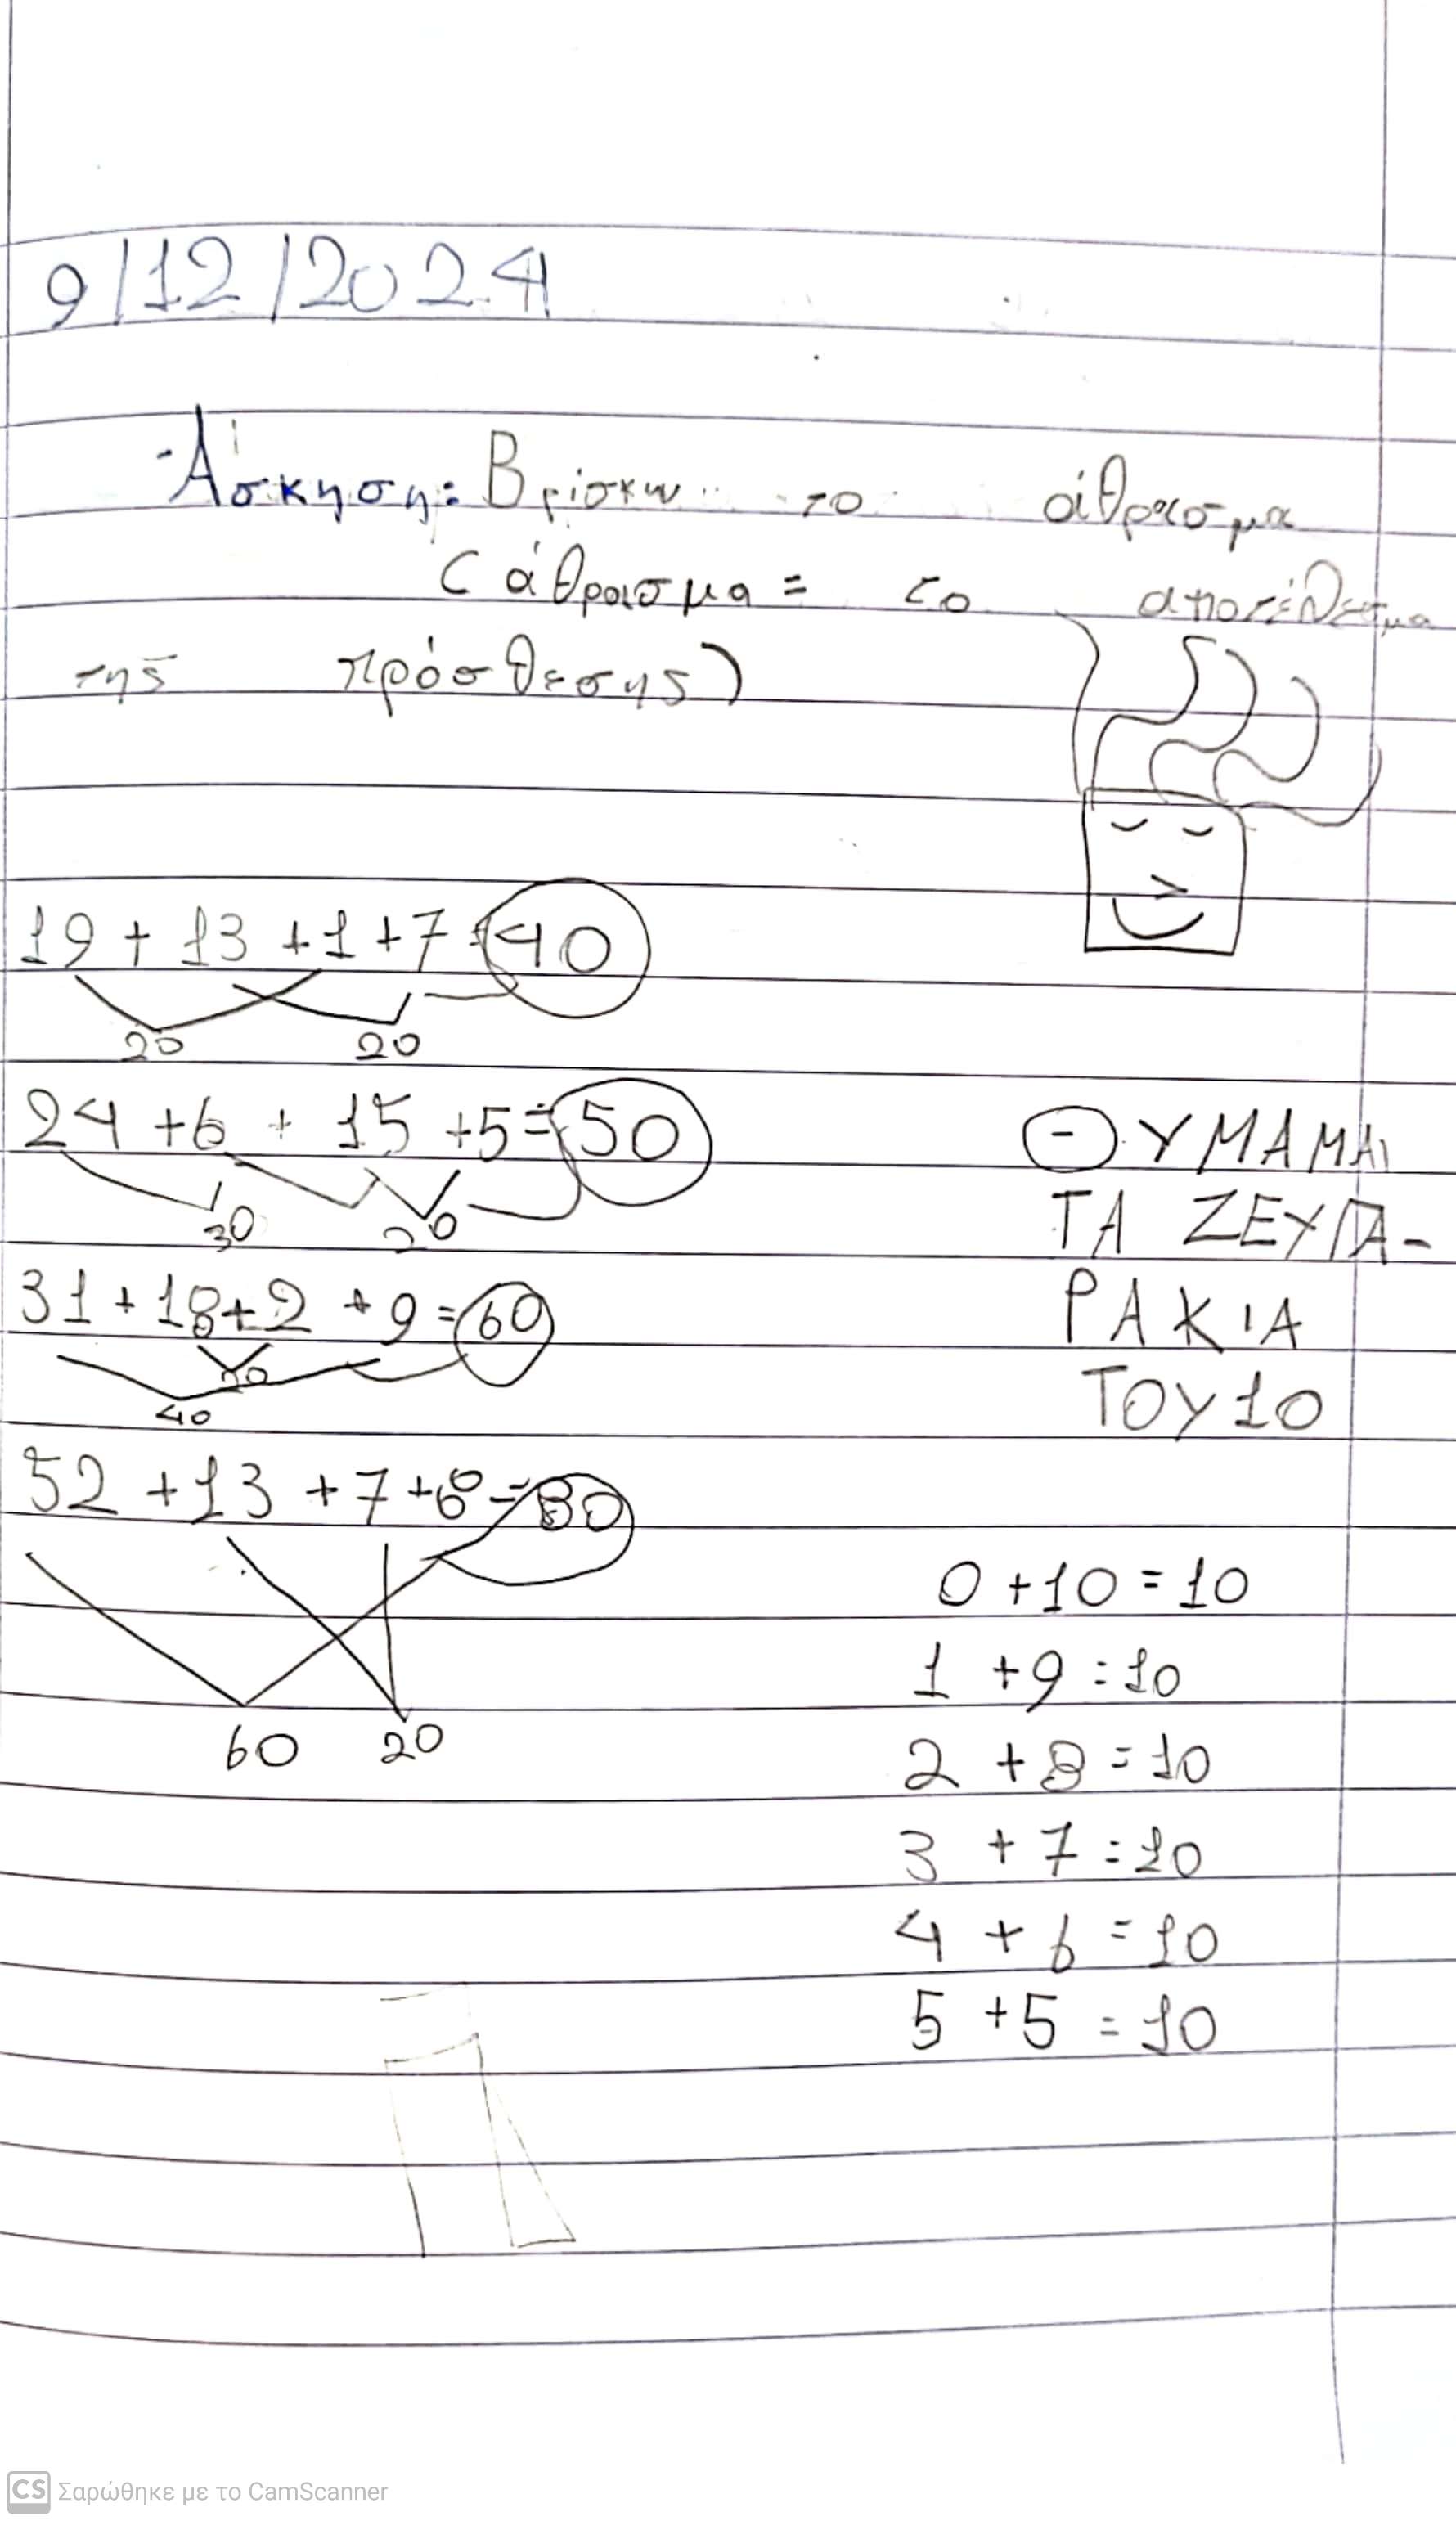 9/12/2024
Άσκηση: Βρίσκω το άθροισμα
(άθροισμα = το αποτέλεσμα
της πρόσθεσης)
19 + 13 + 1 + 7 = 40
20 20
24 + 6 + 15 + 5 = 50
30 20
31 + 18 + 2 + 9 = 60
20
40
52 + 13 + 7 + 8 = 80
60 20
ΘΥΜΑΜΑΙ
ΤΑ ΖΕΥΓΑ-
ΡΑΚΙΑ
ΤΟΥ 10
0 + 10 = 10
1 + 9 = 10
2 + 8 = 10
3 + 7 = 10
4 + 6 = 10
5 + 5 = 10
CS Σαρώθηκε με το CamScanner